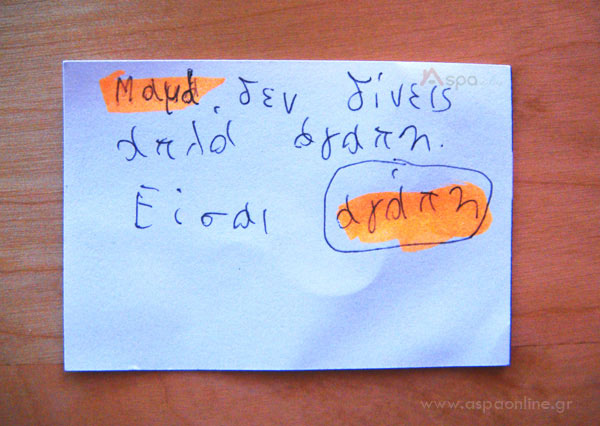 Aspa
Μαμά, δεν δίνεις
απλά αγάπη.
Είσαι αγάπη
www.aspaonline.gr